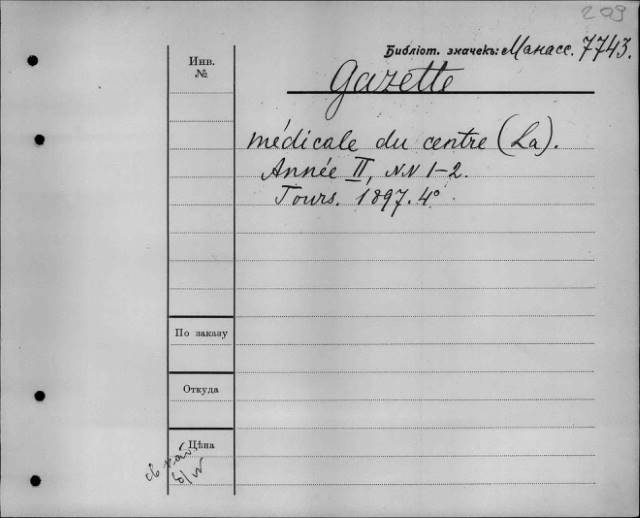 209
Библіот. значекъ: Манасс. 7743.
Инв.
№
Gazette
médicale du centre (La).
Année II, NN 1-2.
Tours. 1897. 4°
По заказу
Откуда
Цѣна